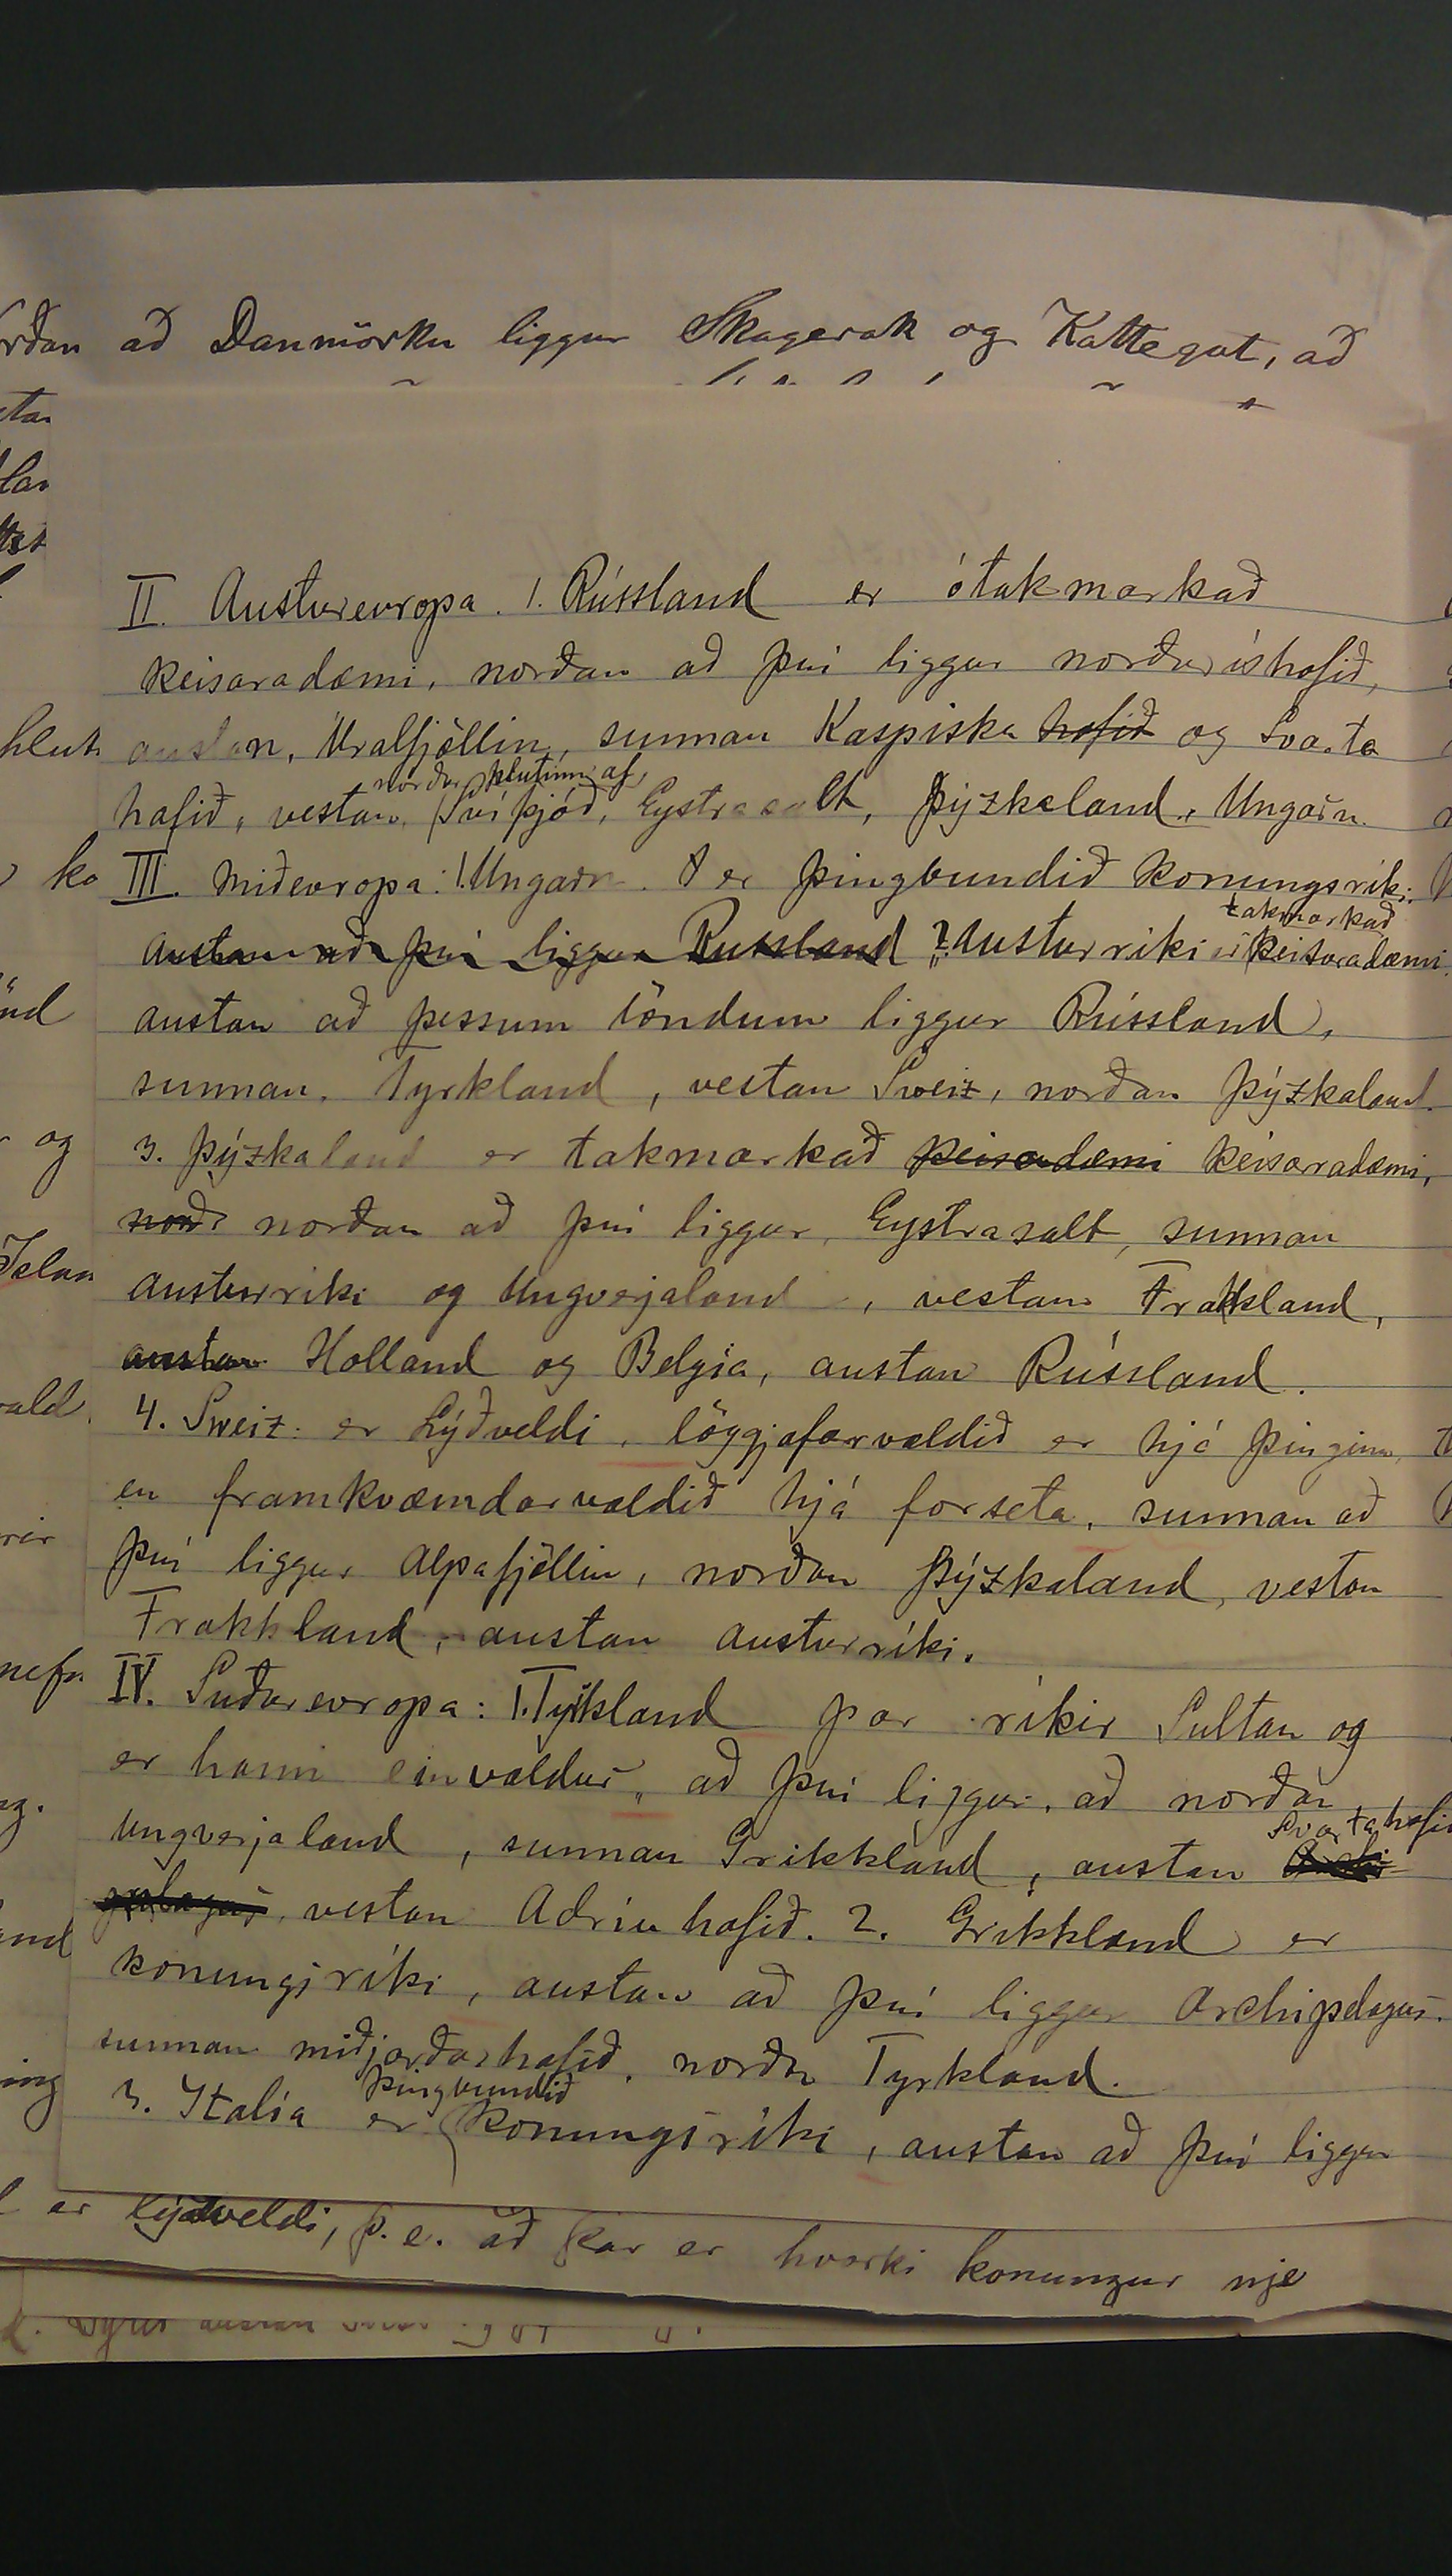 að Danmörku liggur Skagerak og Kattegat, að
II. Austurevropa. 1. Rússland er ótakmarkað
keisaradæmi, norðan að því liggur norðuríshafið,
austan, Uralfjöllin, sunnan Kaspiska hafið og Svarta
norðurhlutinn af
hafið, vestan, Svíþjóð, Eystrasalt, Þýzkaland, Ungarn.
III. Miðevropa: 1. Ungarn. er þingbundið konungsríki.
takmarkað
Austan að því liggur Russland 2. Austurríki er keisaradæmi.
austan að þessum löndum liggur Rússland,
sunnan. Tyrkland, vestan Sweiz, norðan Þýzkaland.
3. Þýzkaland er takmarkað keisadæmi keisaradæmi,
norð norðan að því liggur, Eystrasalt, sunnan
Austurríki og Ungverjaland, vestan Frakkland,
austan Holland og Belgía, austan Rússland.
4. Sweiz. er Lýðveldi, löggjafarvaldið er hjá þinginu,
en framkvæmdarvaldið hjá forseta, sunnan að
því liggur Alpafjöllin, norðan Þýzkaland, vestan
Frakkland, austan austurríki.
IV. Suðurevropa: 1. Tyrkland þar ríkir Sultan og
er hann einvaldur, að því liggur, að norðan
Svartahafið
Ungverjaland, sunnan Grikkland, austan
vestan Adríuhafið. 2. Grikkland er
konungsríki, austan að því liggur Archipelagus.
sunnan miðjarðarhafið, norðan Tyrkland.
þingbundið
3. Italía er konungsríki, austan að því liggur
er lýðveldi, þ.e. að þar er hvorki konungur nje